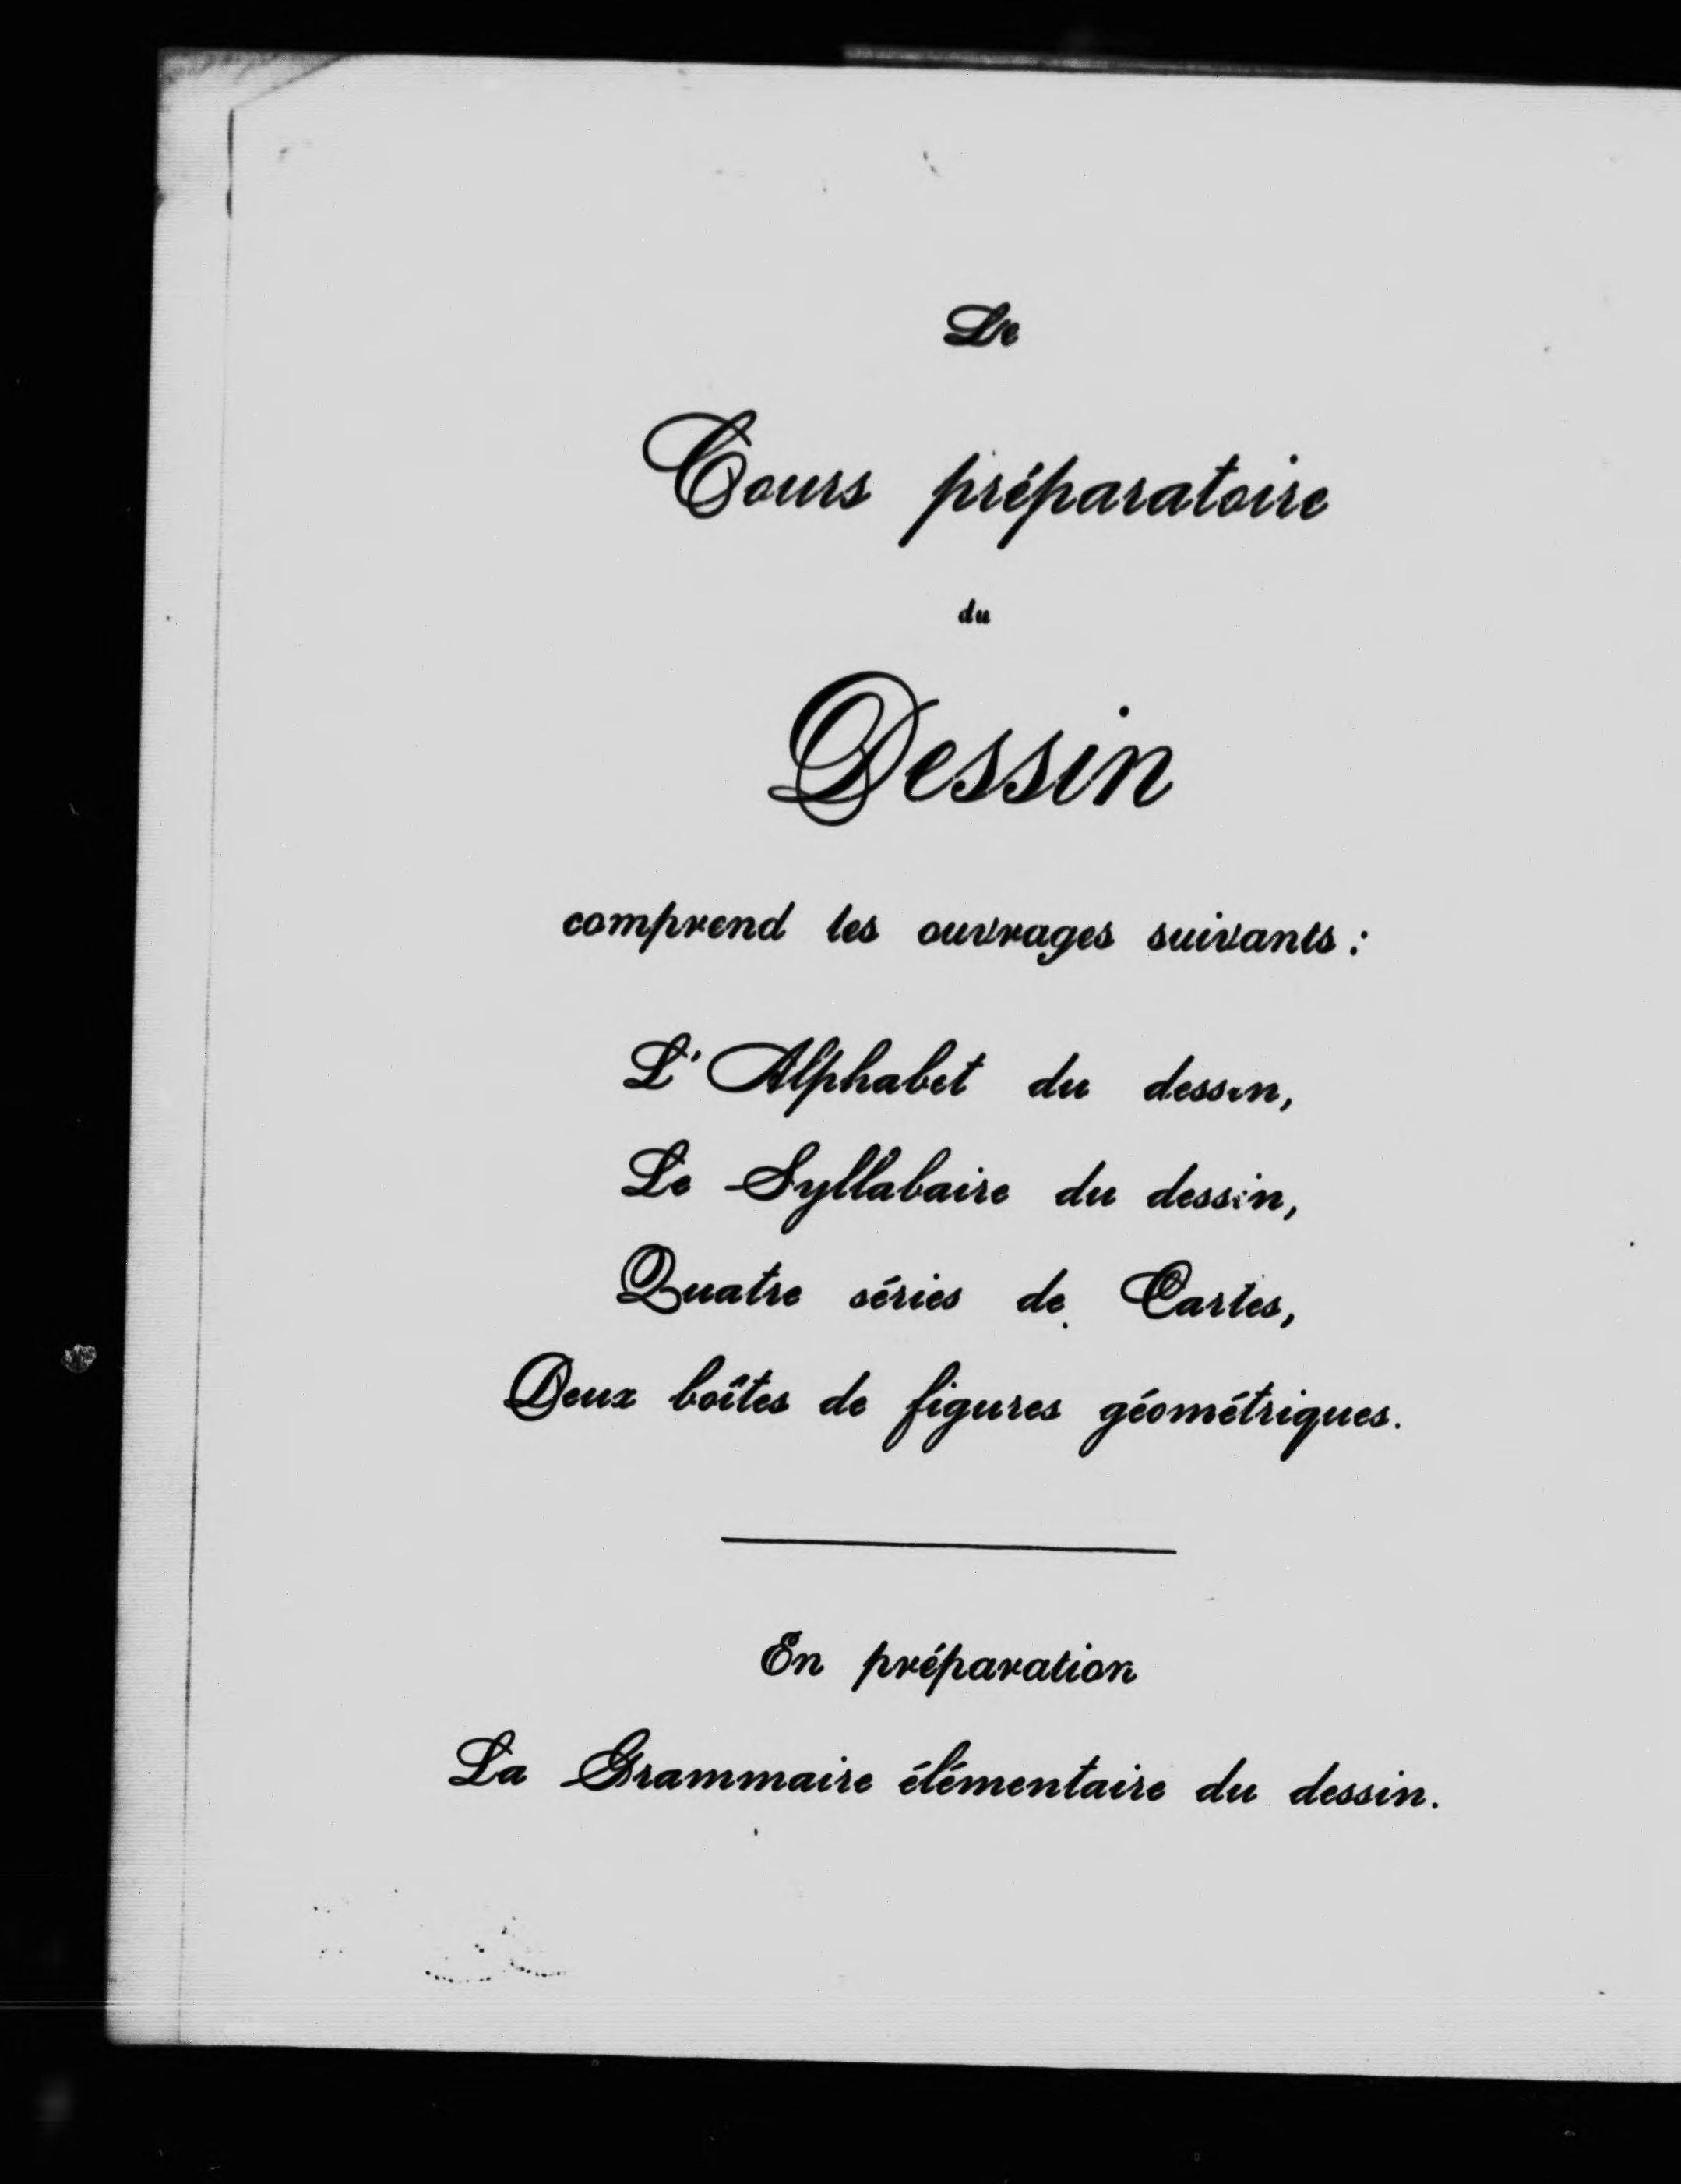 Le
Cours préparatoire
du
Dessin
comprend les ouvrages suivants :
L'Alphabet du dessin,
Le Syllabaire du dessin,
Quatre séries de Cartes,
Deux boîtes de figures géométriques.
En préparation
La Grammaire élémentaire du dessin.